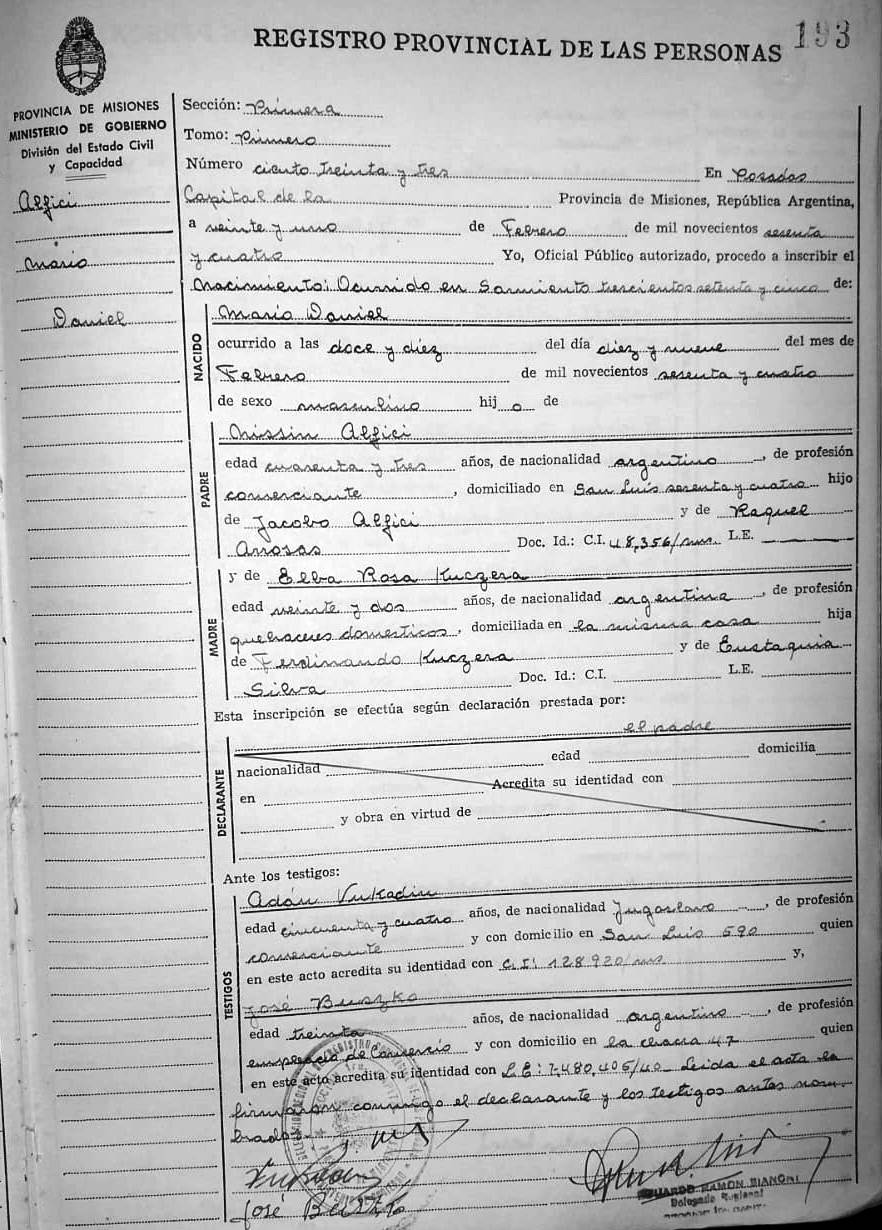 REGISTRO PROVINCIAL DE LAS PERSONAS 193
PROVINCIA DE MISIONES
MINISTERIO DE GOBIERNO
División del Estado Civil
y Capacidad
Alfici
Mario
Daniel
Sección: Primera
Tomo: Primero
Número ciento treinta y tres En Posadas
Capital de la Provincia de Misiones, República Argentina,
a veinte y uno de Febrero de mil novecientos sesenta
y cuatro Yo, Oficial Público autorizado, procedo a inscribir el
Nacimiento: Ocurrido en Sarmiento trescientos setenta y cinco de:
NACIDO
Mario Daniel
ocurrido a las doce y diéz del día diez y nueve del mes de
Febrero de mil novecientos sesenta y cuatro
de sexo masculino hijo de
PADRE
Nissin Alfici
edad cuarenta y tres años, de nacionalidad argentino, de profesión
comerciante, domiciliado en San Luis sesenta y cuatro hijo
de Jacobo Alfici y de Raquel
Arrosas Doc. Id.: C.I. 48,356/mns. L.E.
MADRE
y de Elba Rosa Kuczera
edad veinte y dos años, de nacionalidad argentina, de profesión
quehaceres domesticos, domiciliada en la misma casa hija
de Ferdinando Kuczera y de Eustaquia
Silva Doc. Id.: C.I. L.E.
Esta inscripción se efectúa según declaración prestada por:
el padre
DECLARANTE
nacionalidad edad domicilia
en Acredita su identidad con
y obra en virtud de
Ante los testigos:
TESTIGOS
Adán Vukadin
edad cincuenta y cuatro años, de nacionalidad Jugoslavo, de profesión
comerciante y con domicilio en San Luis 590 quien
en este acto acredita su identidad con C.I: 128920/mns y,
José Buszko
edad treinta años, de nacionalidad argentino, de profesión
empleado de Comercio y con domicilio en la chacra 47 quien
en este acto acredita su identidad con L.E: 7,480,405/40 Leida el acta la
firmaron conmigo el declarante y los testigos antes nom
brados.
José Buszko
EDUARDO RAMON BIANCHI
Delegado Regional